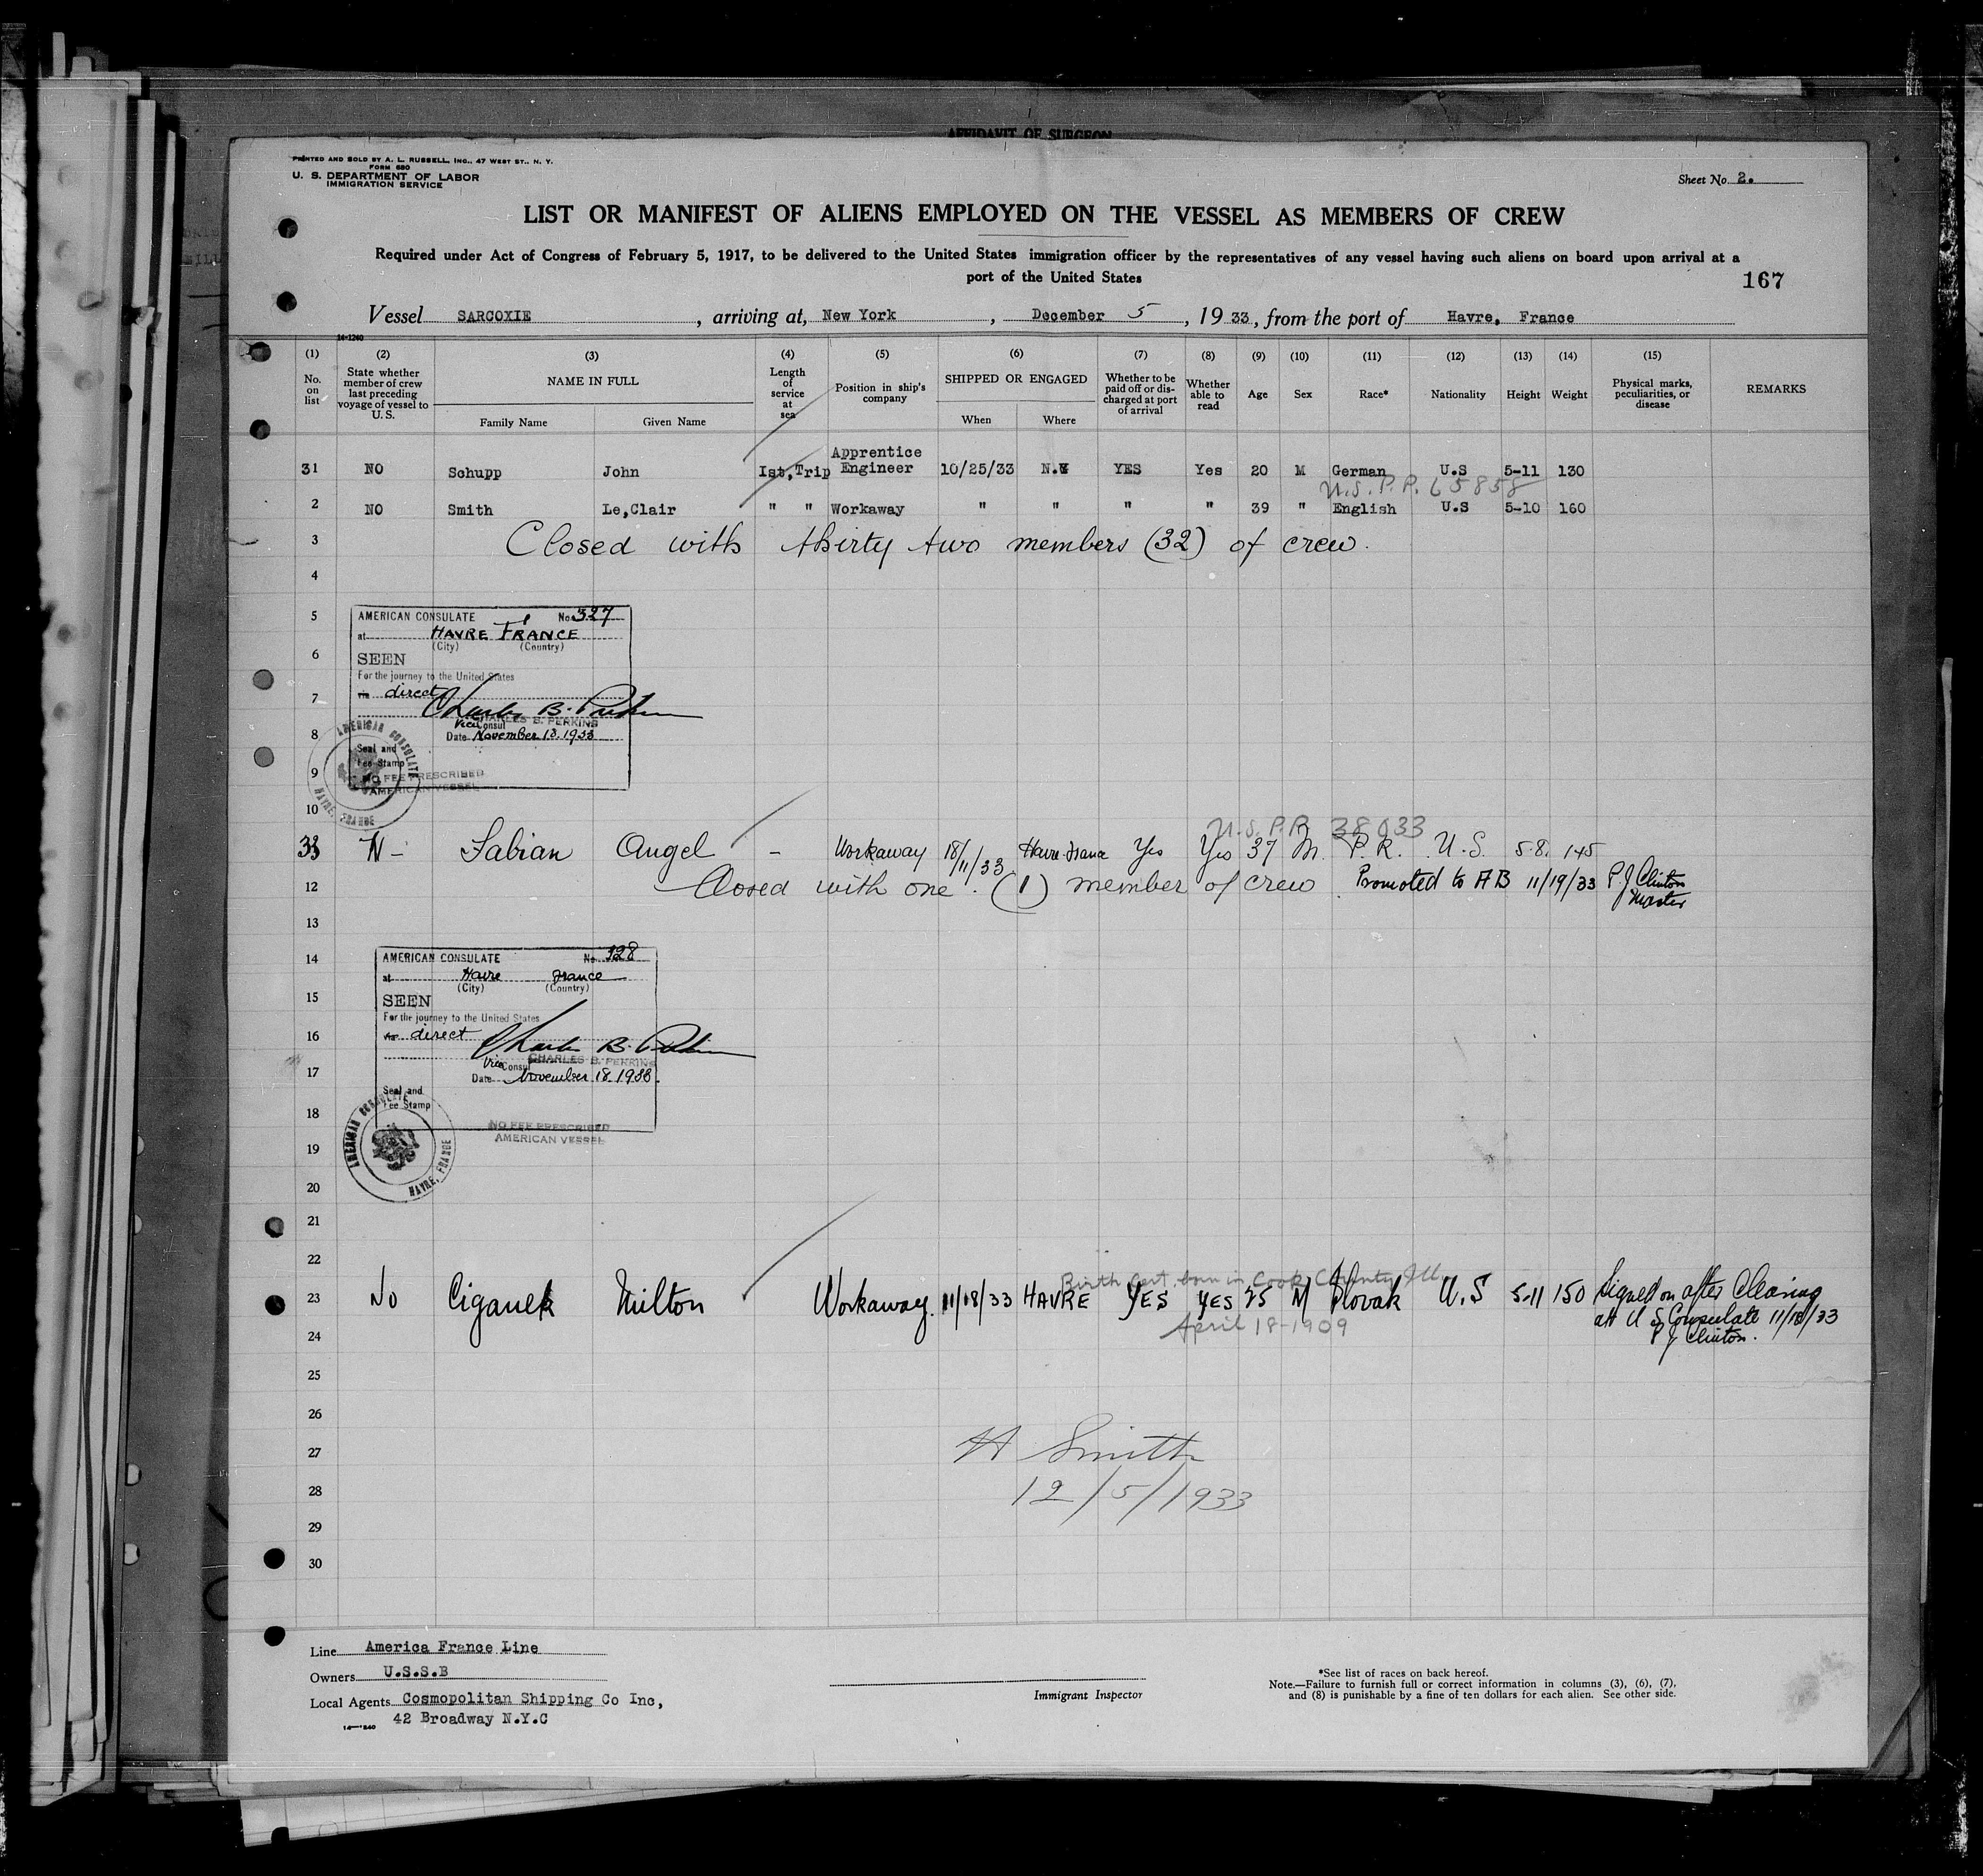 AFFIDAVIT OF SURGEON
PRINTED AND SOLD BY A. L. RUSSELL, INC., 47 WEST ST., N. Y.
FORM 680
U. S. DEPARTMENT OF LABOR
IMMIGRATION SERVICE
Sheet No. 2.
LIST OR MANIFEST OF ALIENS EMPLOYED ON THE VESSEL AS MEMBERS OF CREW
Required under Act of Congress of February 5, 1917, to be delivered to the United States immigration officer by the representatives of any vessel having such aliens on board upon arrival at a
port of the United States
167
Vessel SARCOXIE, arriving at, New York, December 5, 1933, from the port of Havre, France
14-1240
(1) (2) (3) (4) (5) (6) (7) (8) (9) (10) (11) (12) (13) (14) (15)
No. on list State whether member of crew last preceding voyage of vessel to U. S. NAME IN FULL Length of service at sea Position in ship's company SHIPPED OR ENGAGED Whether to be paid off or discharged at port of arrival Whether able to read Age Sex Race* Nationality Height Weight Physical marks, peculiarities, or disease REMARKS
Family Name Given Name When Where
31 NO Schupp John Ist,Trip Apprentice Engineer 10/25/33 N.Y YES Yes 20 M German U.S 5-11 130
U.S.P.P. 65858
2 NO Smith Le,Clair " " Workaway " " " " 39 " English U.S 5-10 160
3 Closed with thirty two members (32) of crew.
4
5 AMERICAN CONSULATE No. 327
at HAVRE FRANCE
(City) (Country)
6 SEEN
For the journey to the United States
7 via direct
Charles B. Perkins
CHARLES B. PERKINS
Vice Consul
8 Date November 13. 1933
Seal and
Fee Stamp
9 NO FEE PRESCRIBED
AMERICAN VESSEL
AMERICAN CONSULATE HAVRE, FRANCE
10
U.S.P.P. 38033
33 N- Fabian Angel - Workaway 18/11/33 Havre-France Yes Yes 37 M. P.R. U.S. 5.8. 145
12 Closed with one. (1) member of crew Promoted to AB 11/19/33 P. J Clinton
Master
13
14 AMERICAN CONSULATE No. 328
at Havre France
(City) (Country)
15 SEEN
For the journey to the United States
16 via direct
Charles B. Perkins
CHARLES B. PERKINS
Vice Consul
17 Date November 18. 1933.
Seal and
Fee Stamp
18
NO FEE PRESCRIBED
AMERICAN VESSEL
AMERICAN CONSULATE HAVRE, FRANCE
19
20
21
22
Birth Cert. born in Cook County Ill
23 No Ciganek Milton Workaway. 11/18/33 HAVRE YES YES 25 M Slovak U.S 5-11 150 Signed on after Clearing
April 18-1909
24 at U S Consulate 11/18/33
P J Clinton.
25
26
27 H Smith
28 12/5/1933
29
30
Line America France Line
Owners U.S.S.B
Local Agents Cosmopolitan Shipping Co Inc,
42 Broadway N.Y.C
14-1240
Immigrant Inspector
*See list of races on back hereof.
Note.—Failure to furnish full or correct information in columns (3), (6), (7),
and (8) is punishable by a fine of ten dollars for each alien. See other side.